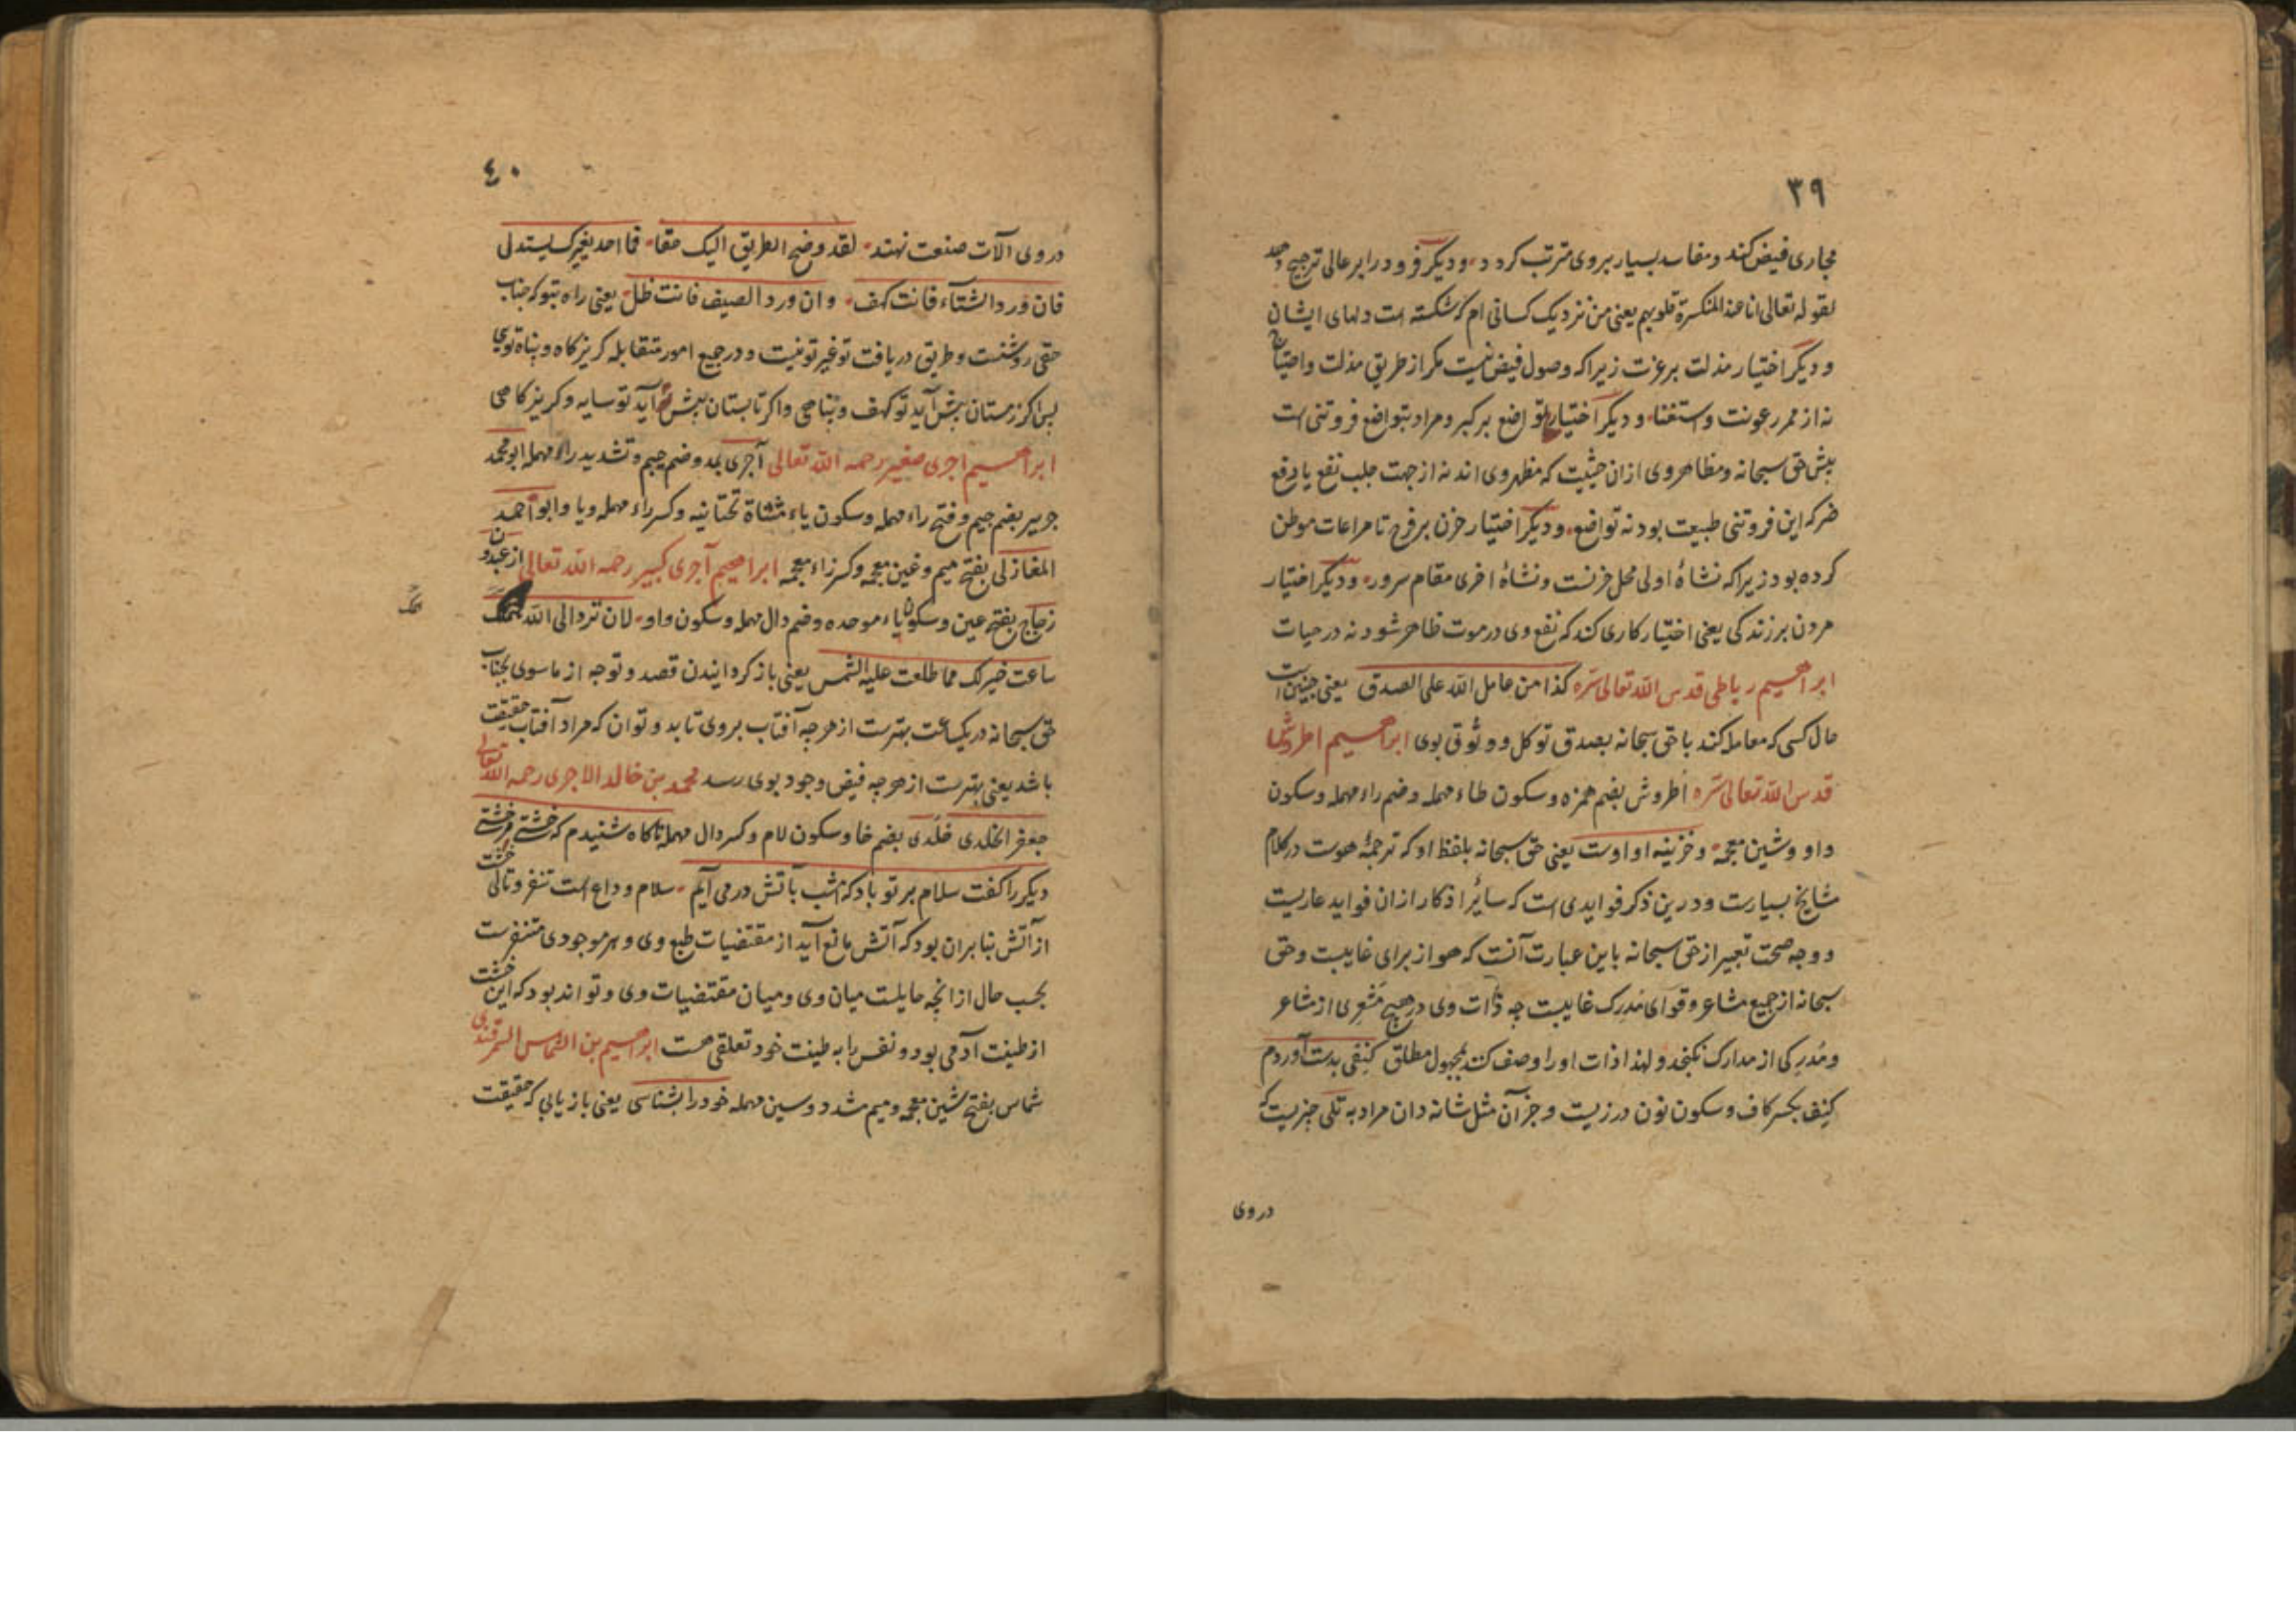 ٣٩
مجاری فیض کند و مفاسد بسیار بروی مترتب کردد و دیکر فرود را بر عالی ترجیح دهد
لقوله تعالی انا عند المنکسرة قلوبهم یعنی من نزدیک کسانی ام که شکسته است دلهای ایشان
و دیکر اختیار مذلت بر عزت زیرا که وصول فیض نیست مکر از طریق مذلت و احتیاج
نه از ممر رعونت و استغنا و دیکر اختیار تواضع بر کبر و مراد بتواضع فروتنی است
پیش حق سبحانه و مظاهر وی ازان حیثیت که مظهر وی اند نه از جهت جلب نفع یا دفع
ضر که این فروتنی طبیعت بود نه تواضع و دیکر اختیار حزن بر فرح تا مراعات موطن
کرده بود زیرا که نشاهٔ اولی محل حزنست و نشاهٔ اخری مقام سرور و دیکر اختیار
مردن بر زندکی یعنی اختیار کاری کند که نفع وی در موت ظاهر شود نه در حیات
ابراهیم رباطی قدس الله تعالی سره کذا من عامل الله علی الصدق یعنی چنین است
حال کسی که معامله کند با حق سبحانه بصدق توکل و وثوق بوی ابراهیم اطروش
قدس الله تعالی سره اُطروش بضم همزه و سکون طاء مهمله و ضم راء مهمله و سکون
واو و شین معجمه و خزینه او اوست یعنی حق سبحانه بلفظ او که ترجمهٔ هوست در کلام
مشایخ بسیارست و درین ذکر فوایدی است که سائر اذکار ازان فواید عاریست
و وجه صحت تعبیر از حق سبحانه باین عبارت آنست که هو از برای غایبست و حق
سبحانه از جمیع مشاعر و قوای مدرک غایبست چه ذات وی در هیچ مشعری از مشاعر
و مدرکی از مدارک نکنجد و لهذا ذات او را وصف کنند بمجهول مطلق کنفی بدست آوردم
کنف بکسر کاف و سکون نون درزیست و جز آن مثل شانه دان مراد به تلی چیزیست که
در وی
٤٠
در وی آلات صنعت نهند لقد وضح الطریق الیک حقا فما احد بغیرک یستدل
فان ورد الشتاء فانت کهف و ان ورد الصیف فانت ظل یعنی راه بتو که جناب
حقی روشنست و طریق دریافت تو غیر تو نیست و در جمیع امور متقابله کریزکاه و پناه توی
پس اکر زمستان پیش آید تو کهف و پناهی و اکر تابستان پیش آید تو سایه و کریزکاهی
ابراهیم اجری صغیر رحمه الله تعالی آجری بمد و ضم جیم و تشدید راء مهمله ابو محمد
جریر بضم جیم و فتح راء مهمله و سکون یاء مثناة تحتانیه و کسر راء مهمله و یا و ابو احمد
المغازلی بفتح میم و غین معجمه و کسر زاء معجمه ابراهیم آجری کبیر رحمه الله تعالی از عبدون
زجاج بفتح عین و سکون باء موحده و ضم دال مهمله و سکون واو لان ترد الی الله همک
ساعت خیر لک مما طلعت علیه الشمس یعنی باز کردانیدن قصد و توجه از ماسوی بجناب
حق سبحانه در یکساعت بهترست از هر چه آفتاب بروی تابد و توان که مراد آفتاب حقیقت
باشد یعنی بهترست از هر چه فیض وجود بوی رسد محمد بن خالد الاجری رحمه الله تعالی
جعفر الخلدی خلدی بضم خا و سکون لام و کسر دال مهمله ناکاه شنیدم که خشتی مر خشتی
دیکر را کفت سلام بر تو باد که امشب بآتش در می آیم سلام وداع است تنفر و تالی خشت
از آتش بنا بران بود که آتش مانع آید از مقتضیات طبع وی و هر موجودی متنفرست
بحسب حال از انچه حایلست میان وی و میان مقتضیات وی و تواند بود که این خشت
از طینت آدمی بود و نفس را به طینت خود تعلقی هست ابراهیم بن الشماس السمرقندی
شماس بفتح شین معجمه و میم مشدد و سین مهمله خود را بشناسی یعنی باز یابی که حقیقت